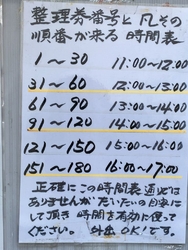 整理券番号と凡その
順番が来る時間表
1～30 11:00～12:00
31～60 12:00～13:00
61～90 13:00～14:00
91～120 14:00～15:00
121～150 15:00～16:00
151～180 16:00～17:00
正確にこの時間表通りでは
ありませんがだいたいの目安に
して頂き時間を有効に使って
ください。外出OKです。